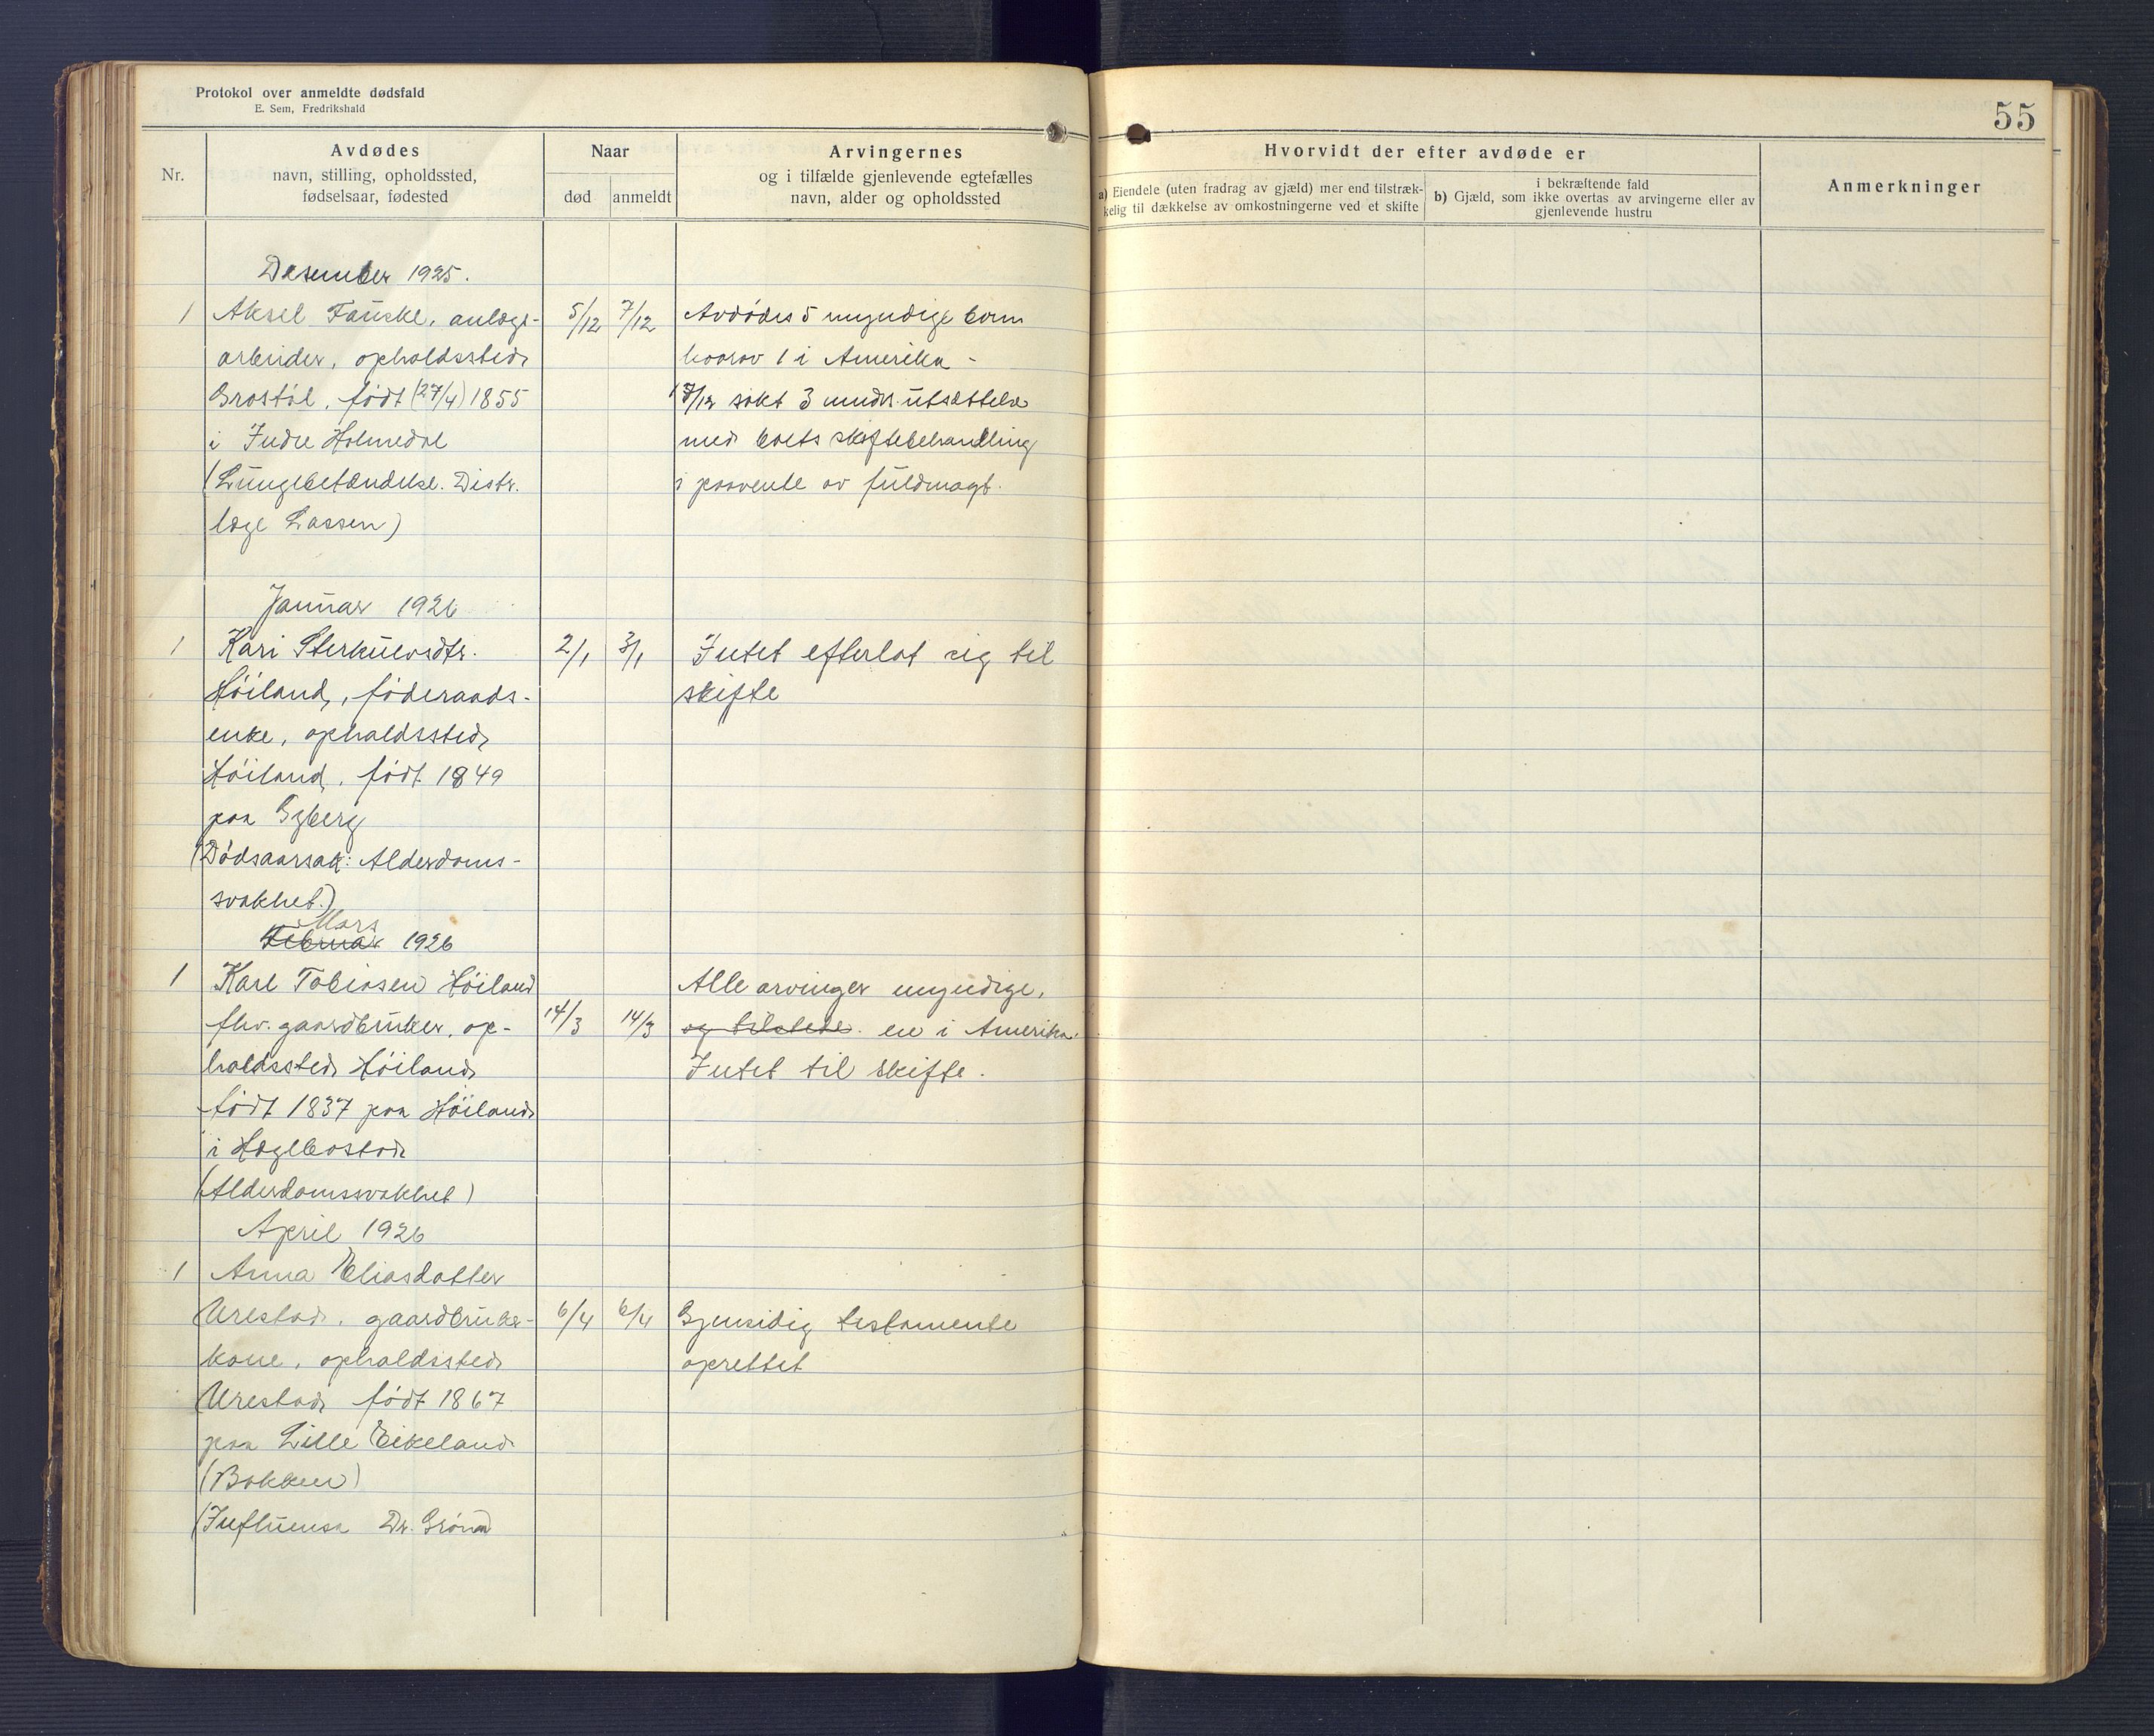 Protokol over anmeldte dødsfald
E. Sem, Fredrikshald
55
Nr.
Avdødes
navn, stilling, opholdssted,
fødselsaar, fødested
Naar
død
anmeldt
Arvingernes
og i tilfælde gjenlevende egtefælles
navn, alder og opholdssted
Hvorvidt der efter avdøde er
a) Eiendele (uten fradrag av gjæld) mer end tilstræk-
kelig til dækkelse av omkostningerne ved et skifte
i bekræftende fald
b) Gjæld, som ikke overtas av arvingerne eller av
gjenlevende hustru
Anmerkninger
Desember 1925.
1 Aksel Fauske, anlægs-
arbeider, opholdssted
født (27/4) 1855
i Indre Holmedal
(Lungebetændelse. Distr.
læge Lassen)
5/12 7/12
Avdødes 5 myndige barn
hvorav 1 i Amerika -
/12 søkt 3 mndrs. utsættelse
med boets skiftebehandling
i paavente av fuldmagt.
Januar 1926
1 Kari
Høiland, føderaads-
enke, opholdssted
Høiland, født 1849
paa Gyberg
(Dødsaarsak: Alderdoms-
svakhet.)
2/1 3/1
Intet efterlot sig til
skifte
Mars
Februar 1926
1 Karl Tobiasen Høiland
fhv. gaardbruker, op-
holdssted Høiland
født 1837 paa Høiland
i Hægebostad
(Alderdomssvakhet)
14/3 14/3
Alle arvinger myndige,
og tilstede. en i Amerika.
Intet til skifte.
April 1926
1 Anna Eliasdatter
Urestad, gaardbruker-
kone, opholdssted
Urestad født 1867
paa Lille Eikeland
(Bakken)
(Influensa Dr.
6/4 6/4
Gjensidig testamente
oprettet